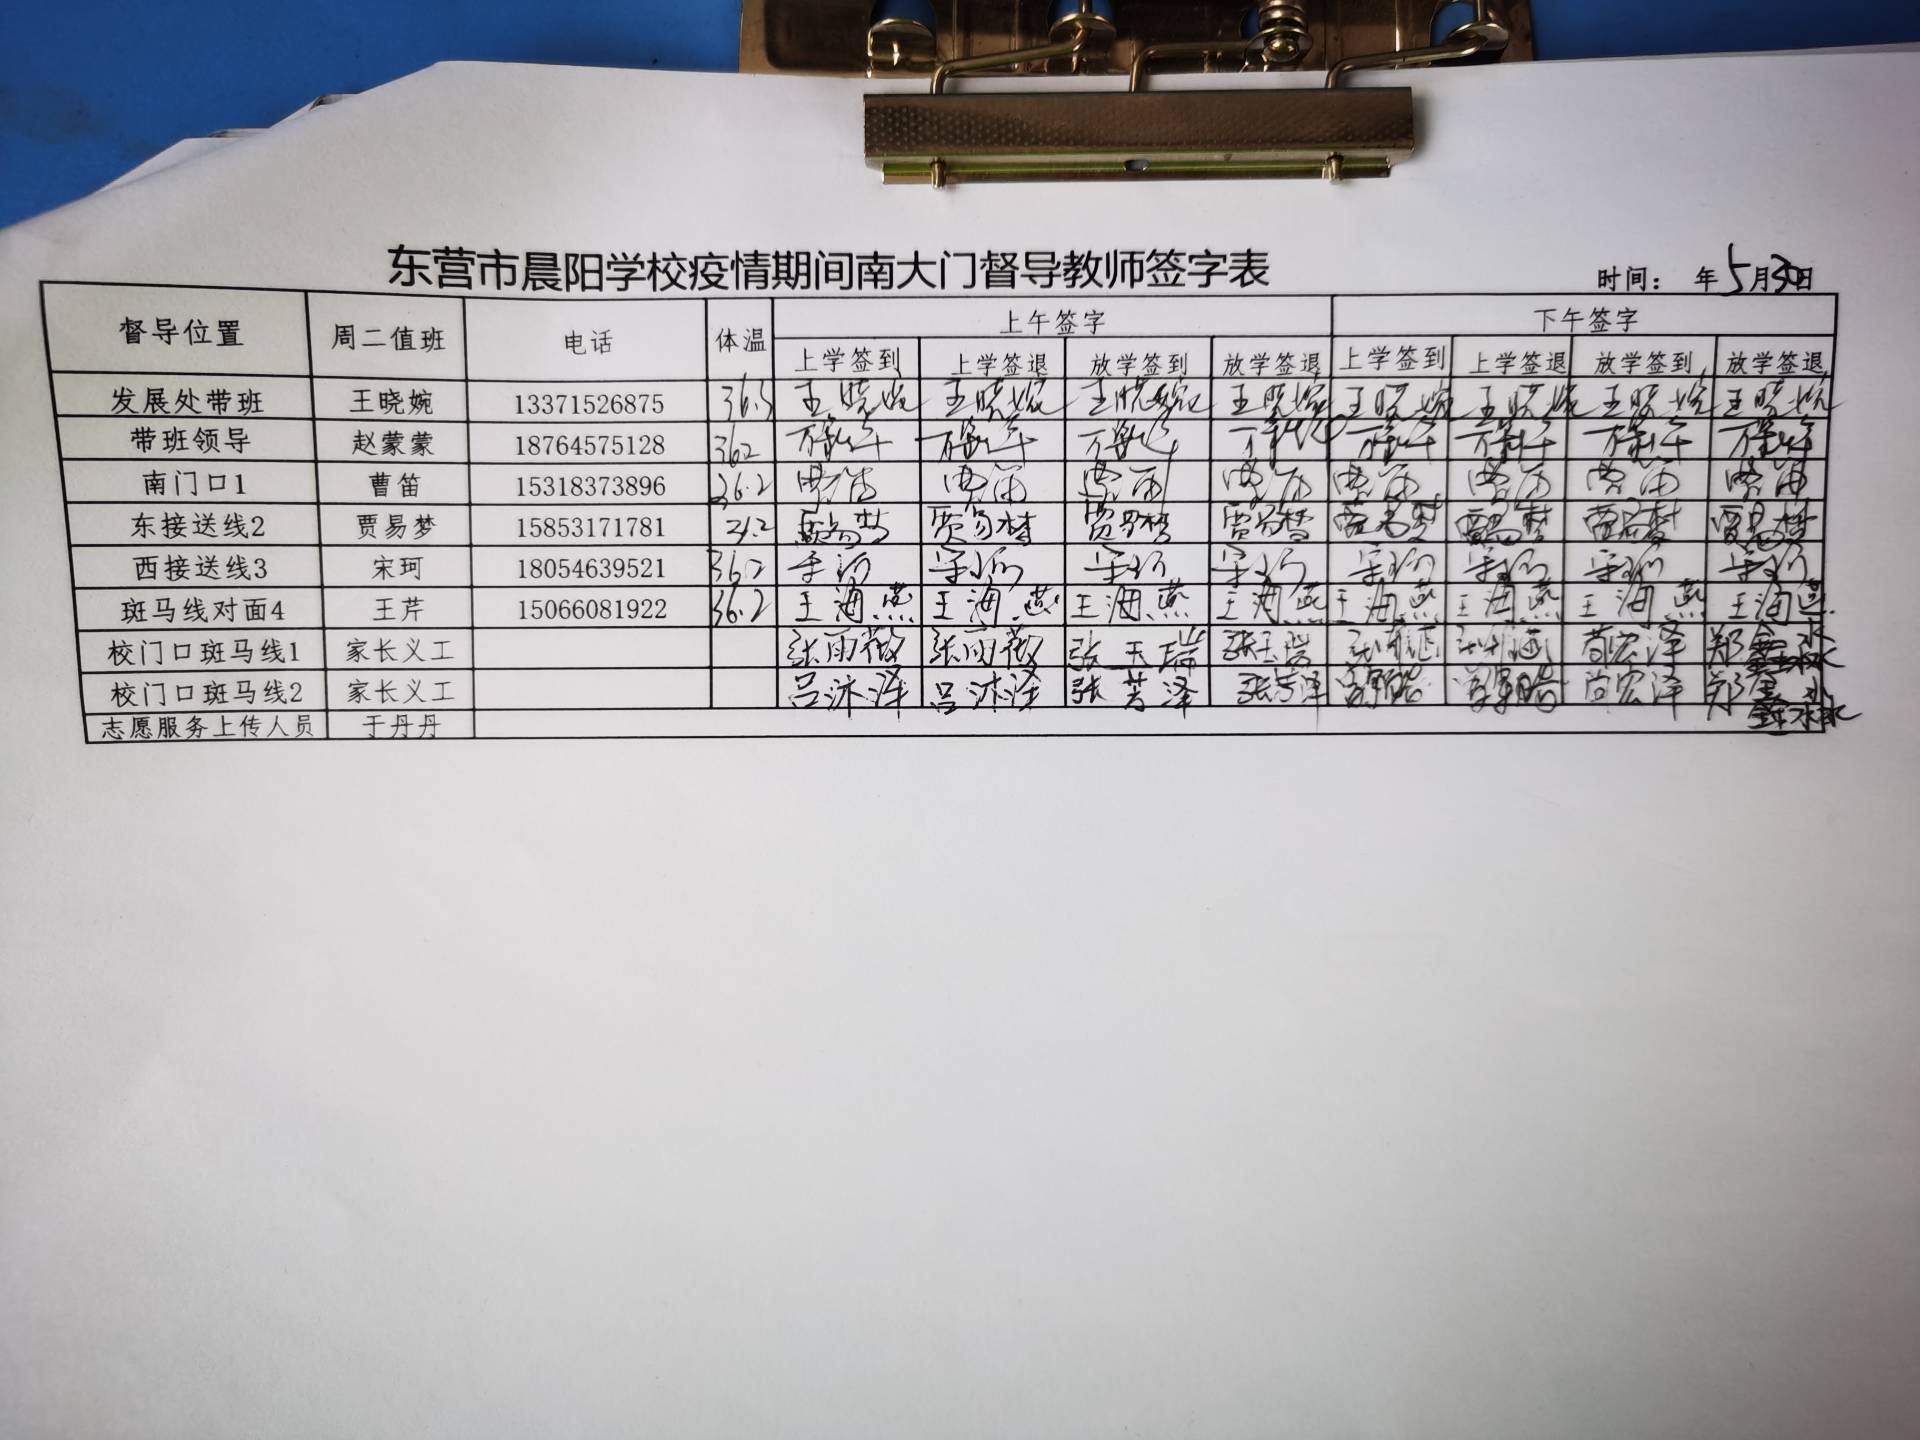 东营市晨阳学校疫情期间南大门督导教师签字表
时间： 年5月30日
督导位置 周二值班 电话 体温 上午签字 下午签字
上学签到 上学签退 放学签到 放学签退 上学签到 上学签退 放学签到 放学签退
发展处带班 王晓婉 13371526875 36.5 王晓婉 王晓婉 王晓婉 王晓婉 王晓婉 王晓婉 王晓婉 王晓婉
带班领导 赵蒙蒙 18764575128 362
南门口1 曹笛 15318373896 36.2 曹笛 曹笛 曹笛 曹笛 曹笛 曹笛 曹笛 曹笛
东接送线2 贾易梦 15853171781 贾易梦 贾易梦 贾易梦 贾易梦 贾易梦 贾易梦 贾易梦 贾易梦
西接送线3 宋珂 18054639521 36.2 宋珂 宋珂 宋珂 宋珂 宋珂 宋珂 宋珂 宋珂
斑马线对面4 王芹 15066081922 36.2 王海燕 王海燕 王海燕 王海燕 王海燕 王海燕 王海燕 王海燕
校门口斑马线1 家长义工 张雨薇 张雨薇 张玉瑞 张玉瑞 苟宏泽 郑
校门口斑马线2 家长义工 吕沐泽 吕沐泽 张芳泽 张芳泽 宏泽 郑
志愿服务上传人员 于丹丹